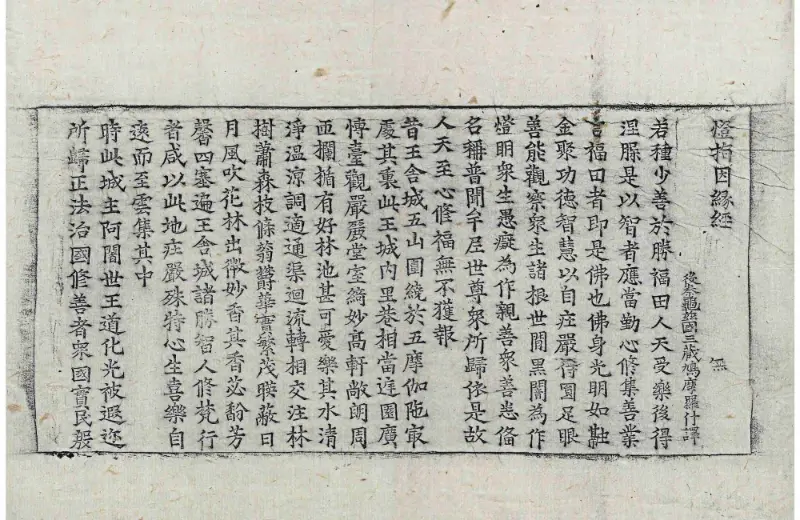 燈指因緣經
無
後秦龜茲國三藏鳩摩羅什譯
若種少善於勝福田人天受樂後得
涅槃是以智者應當勤心修集善業
言福田者即是佛也佛身光明如融
金聚功德智慧以自莊嚴得圓足眼
善能觀察衆生諸根世間黑闇為作
燈明衆生愚癡為作親善衆善悉備
名稱普聞牟尼世尊衆所歸依是故
人天至心修福無不獲報
昔王舍城五山圍繞於五摩伽陁冣
處其裏此王城内里巷相當庭園廣
博臺觀嚴麗堂室綺妙高軒敞朗周
匝欄楯有好林池甚可愛樂其水清
淨溫涼調適通渠迴流轉相交注林
樹蕭森枝條蓊欝華實繁茂暎蔽日
月風吹花林出微妙香其香苾馚芳
馨四塞遍王舍城諸勝智人修梵行
者咸以此地莊嚴殊特心生喜樂自
逺而至雲集其中
時此城主阿闍世王道化光被遐迩
所歸正法治國修善者衆國實民殷